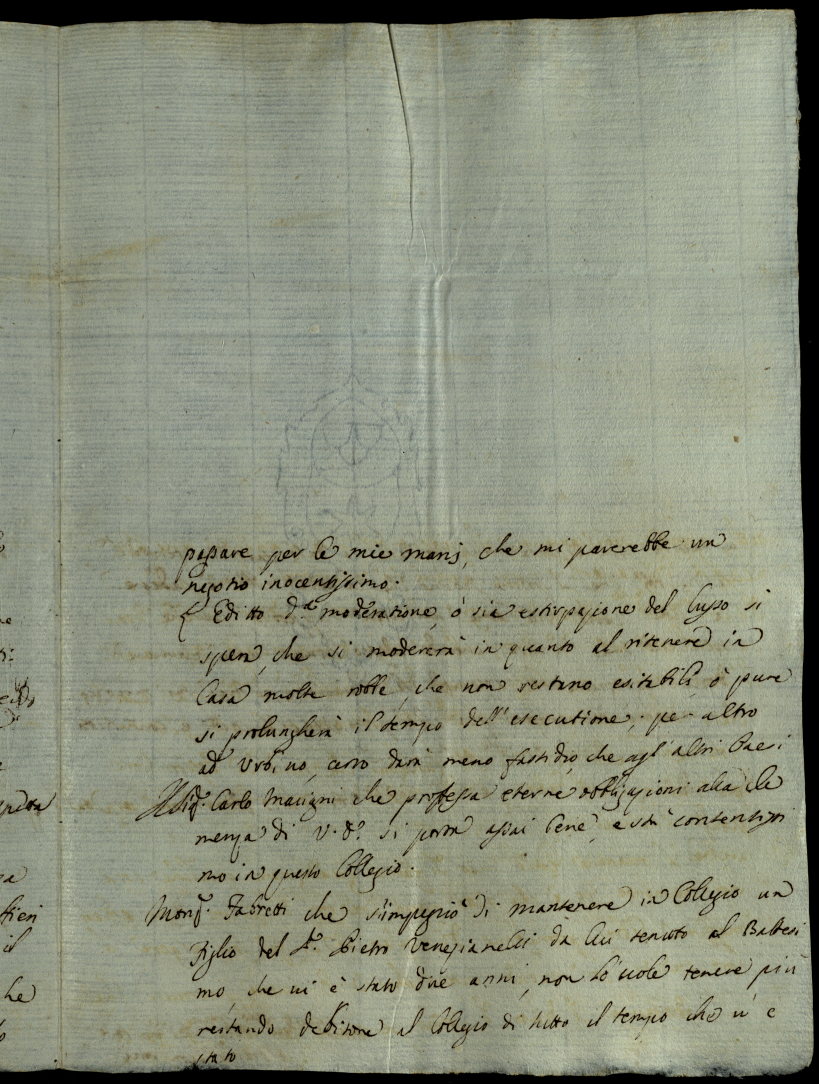 passare per le mie manj, che mi parerebbe un
negotio inocentissimo.
L'Editto d.ª moderatione, ò sia estirpazione del lusso si
spera, che si modererà in quanto al ritenere in
Casa molte robbe, che non restano esitabili ò pure
si prolungherà il tempo dell'esecutione, per altro
ad Urbino, certo darà meno fastidio, che agl'altri Paesi
Il Sig.r Carlo che professa eterne obbligazioni alla Cle
menza di V.S. si porta assai bene, e stà contentissi
mo in questo Collegio.
Mons.r Fabretti che s'impegnò di mantenere in Collegio un
Figlio del S.r Pietro Venezianelli da lui tenuto al Battesi
mo, che vi è stato due anni, non lo vuole tenere più
restando debitore al Collegio di tutto il tempo che v'è
stato
he
il